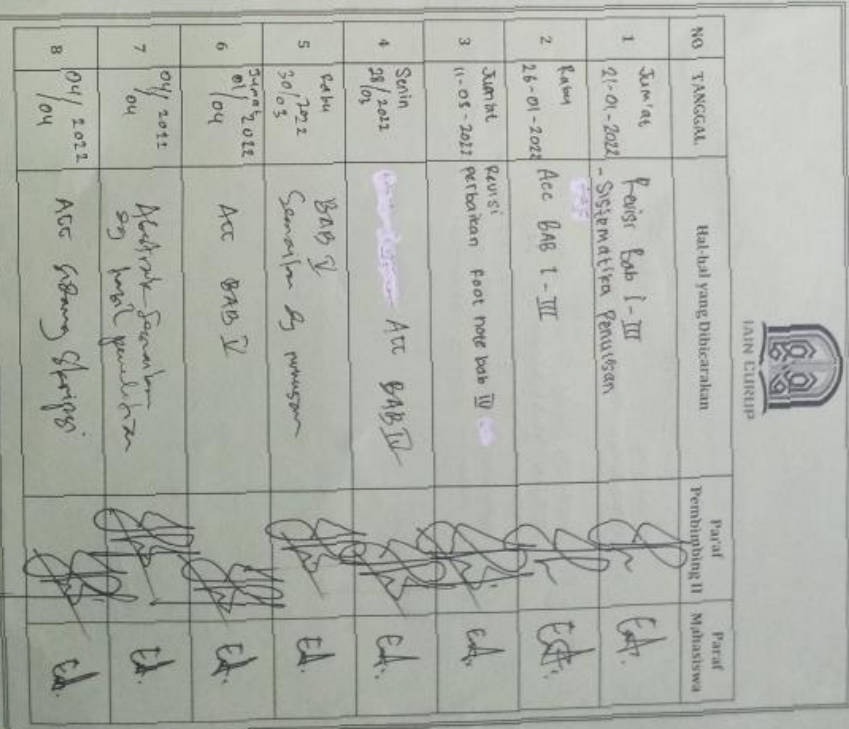 IAIN CURUP
NO TANGGAL Hal-hal yang Dibicarakan Paraf Pembimbing II Paraf Mahasiswa
1 Jum'at
21-01-2022
Revisi Bab I-III
- Sistematika Penulisan
EA.
2 Rabu
26-01-2022
Acc BAB I - III
EA.
3 Jum'at
11-03-2022
Revisi
perbaikan foot note bab IV
EA.
4 Senin
28/2022
03
Acc BAB IV
EA.
5 Rabu
30/2022
03
BAB V
Sesuaikan dg rumusan
EA.
6 Jumat
01/2022
04
Acc BAB V
EA.
7 04/2022
04
Abstrak Sesuaikan
dg hasil penelitian
EA.
8 04/2022
04
Acc Sidang Skripsi
EA.